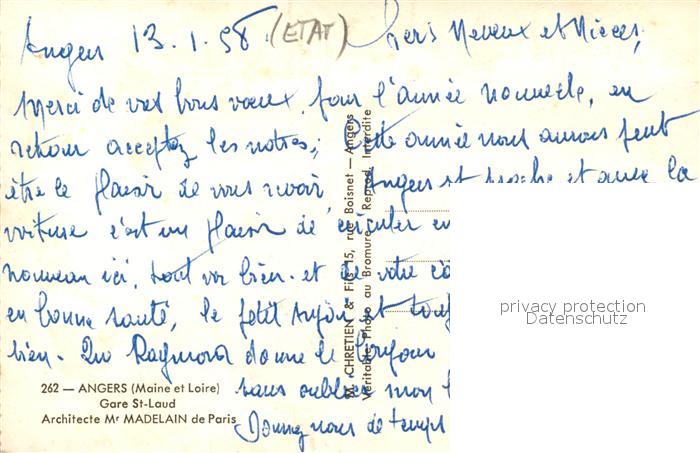 Angers 13.1.58 (ETAT) Chers Neveux et Nièces,
Merci de vos bons voeux pour l'année nouvelle, en
retour acceptez les notres; Cette année nous aurons peut
être le plaisir de vous revoir, Angers est proche et avec la
voiture c'est un plaisir de circuler
nouveau ici, tout va bien. et de votre
en bonne santé, le petit
bien. donne le bonjour
sans oublier mon
Donnez nous de temps
M. CHRETIEN & Fils 15, rue Boisnet — Angers
Véritable Photo au Bromure - Reprod. Interdite
privacy protection
Datenschutz
262 — ANGERS (Maine et Loire)
Gare St-Laud
Architecte Mr MADELAIN de Paris